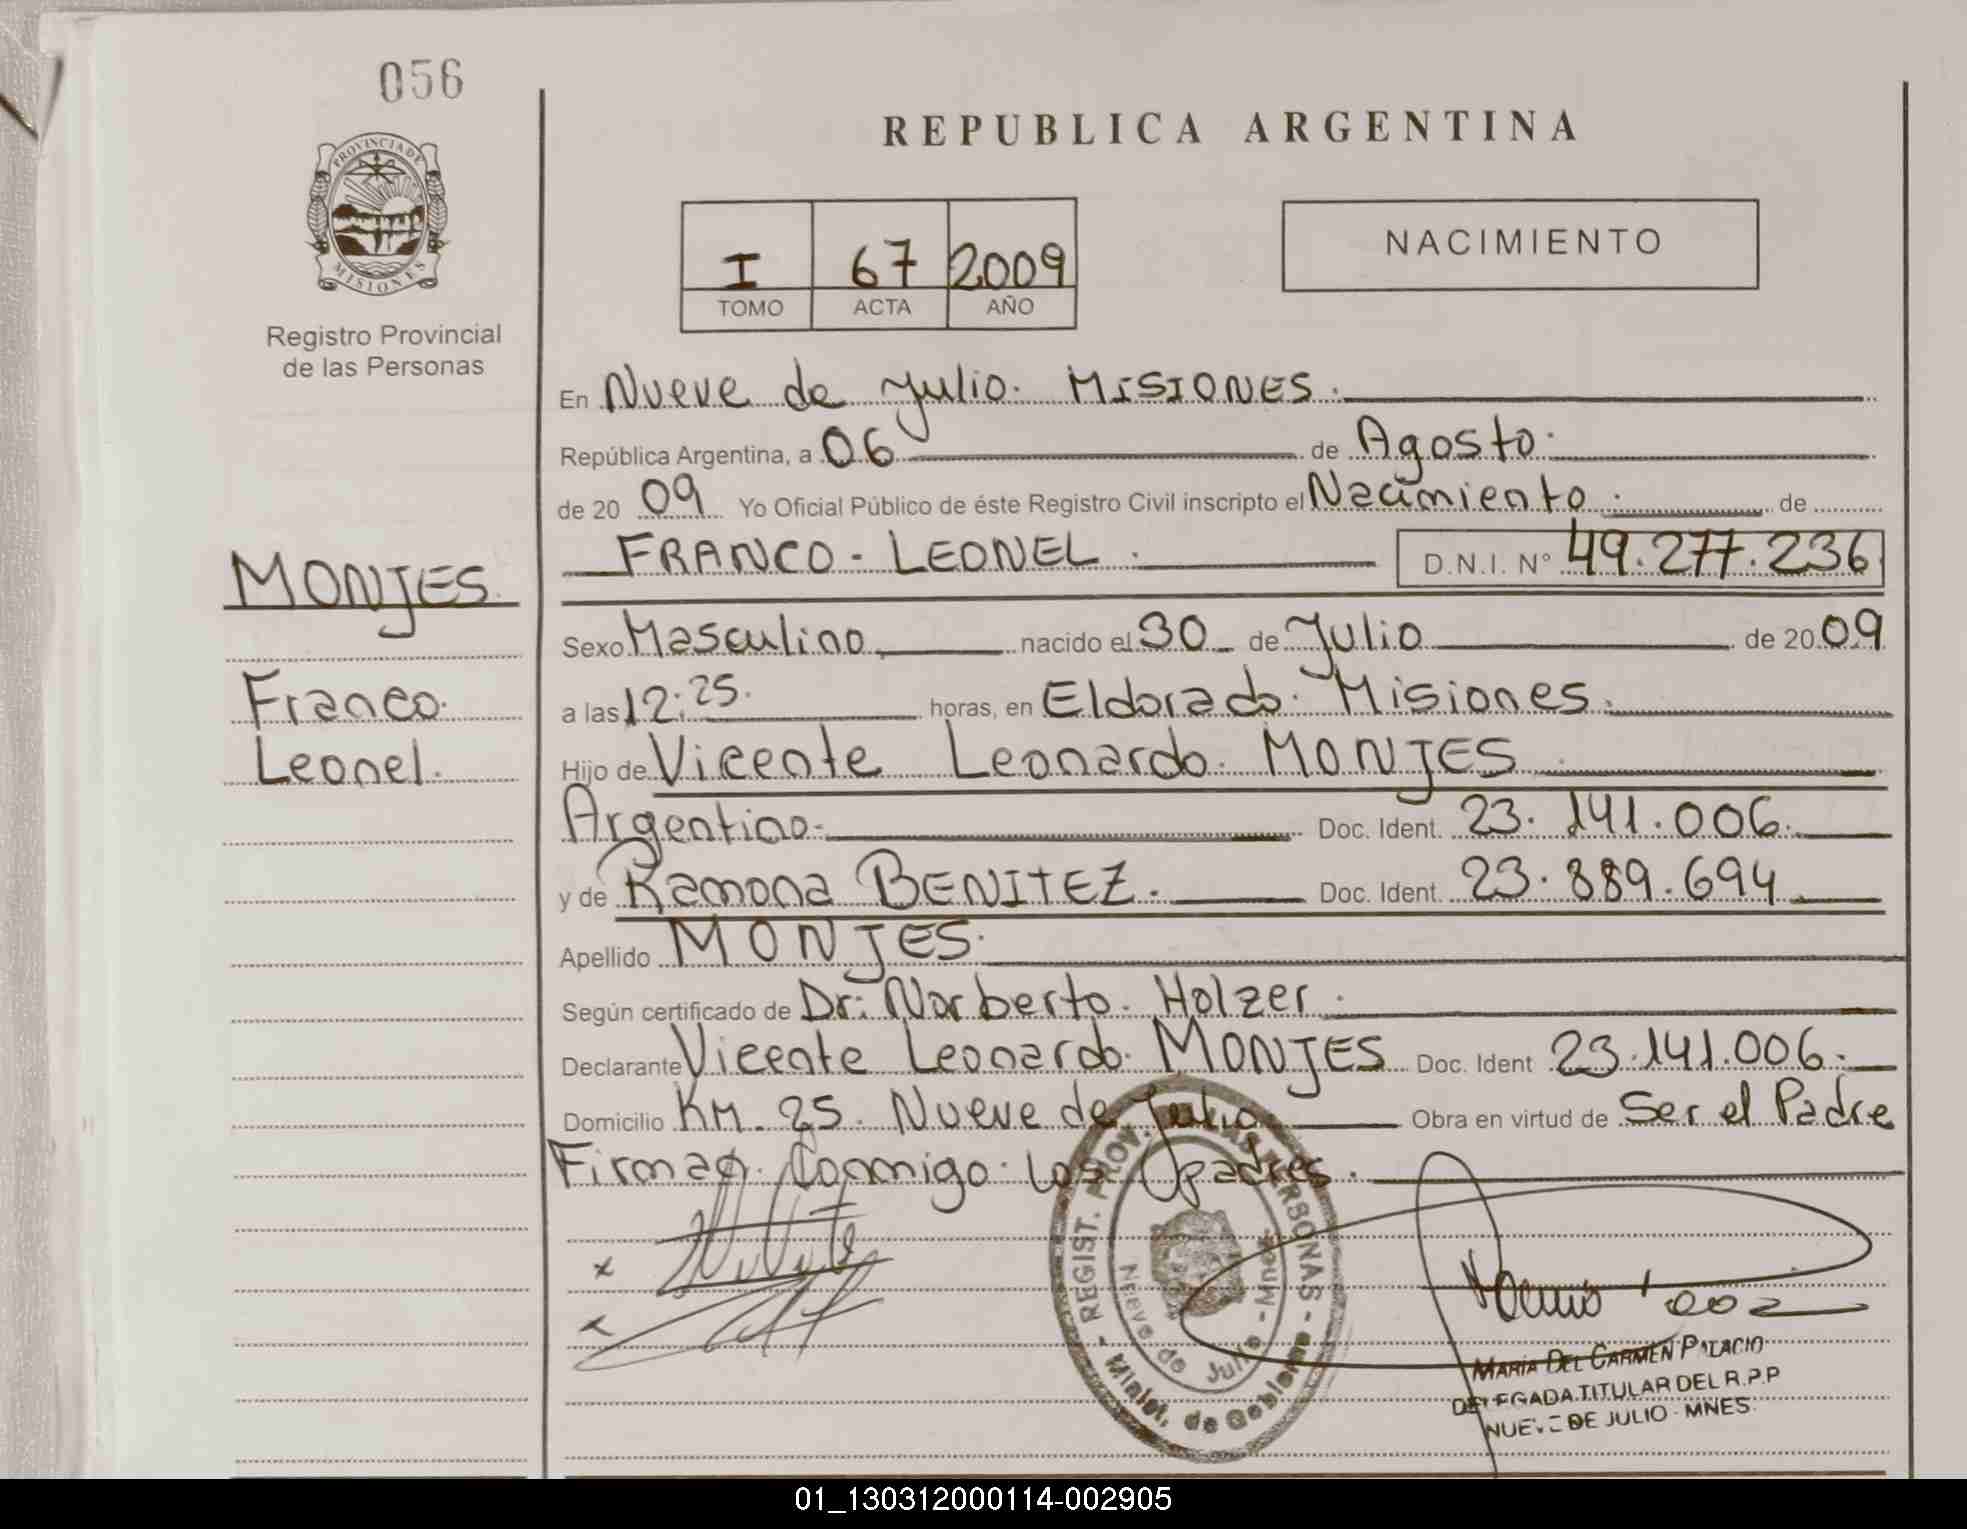 056
PROVINCIA DE
MISIONES
Registro Provincial
de las Personas
MONJES
Franco
Leonel.
REPUBLICA ARGENTINA
I 67 2009
TOMO ACTA AÑO
NACIMIENTO
En Nueve de Julio. MISIONES.
República Argentina, a 06 de Agosto.
de 20 09 Yo Oficial Público de éste Registro Civil inscripto el Nacimiento. de
FRANCO - LEONEL. D.N.I. Nº 49.277.236
Sexo Masculino nacido el 30 de Julio de 20 09
a las 12:25. horas, en Eldorado. Misiones.
Hijo de Vicente Leonardo. MONJES.
Argentino. Doc. Ident. 23.141.006.
y de Ramona BENITEZ. Doc. Ident. 23.889.694
Apellido MONJES.
Según certificado de Dr: Norberto. Holzer.
Declarante Vicente Leonardo. MONJES Doc. Ident 23.141.006.
Domicilio KM. 25. Nueve de Julio Obra en virtud de Ser el Padre
Firman. Conmigo. los padres.
x
x
REGIST. PROV. DE LAS PERSONAS - Minist. de Gobierno
Nueve de Julio - Mnes.
MARIA DEL CARMEN PALACIO
DELEGADA TITULAR DEL R.P.P
NUEVE DE JULIO - MNES.
01_130312000114-002905